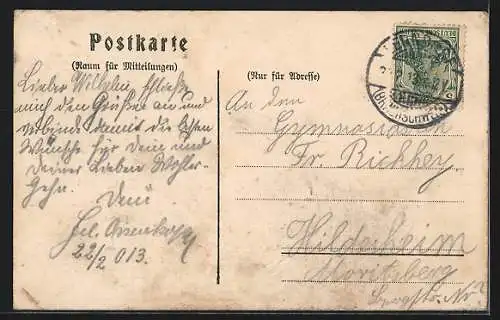 Postkarte
(Raum für Mitteilungen)
Lieber Wilhelm
mich den Grüßen an und
verbinde damit die besten
Wünsche für Dein und
Deiner Lieben Wohler-
gehn.
Dein
22/2 013.
(Nur für Adresse)
An den
Gymnasiasten
Fr. Rickhey
Hildesheim
Moritzberg
Bergstr. Nr